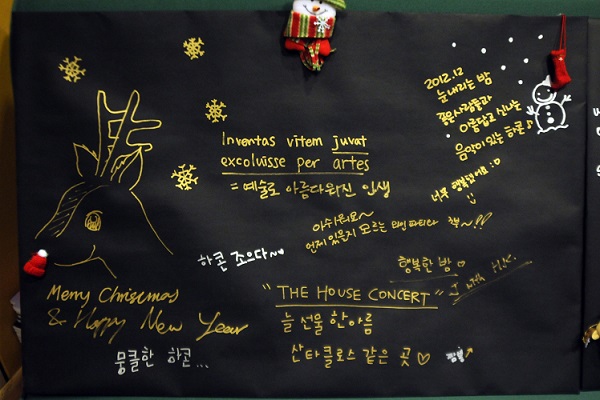 Inventas vitem juvat
excoluisse per artes
= 예술로 아름다워진 인생
2012.12
눈내리는 밤
좋은사람들과
아름답고 신나는
음악이 있는 하콘♪
너무 행복했어요 :D
아쉬워요~
언제 있을지 모르는 파티
하콘 조으다~
행복한 밤
"THE HOUSE CONCERT"
늘 선물 한아름
산타클로스 같은 곳♡
Merry Chrisemas
& Happy New Year
뭉클한 하콘...